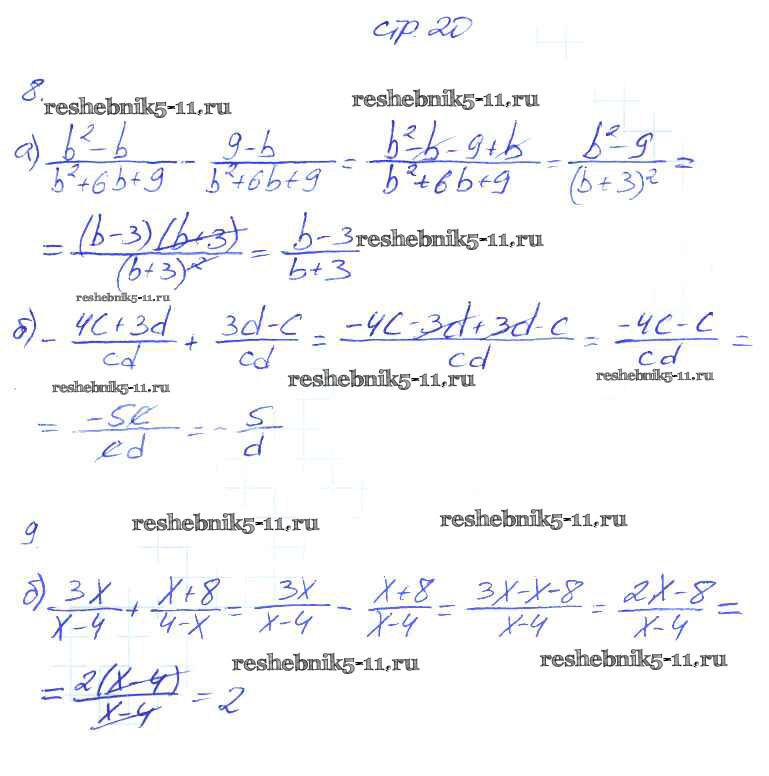 стр. 20
8. reshebnik5-11.ru reshebnik5-11.ru
а) (b² - b)/(b² + 6b + 9) - (9 - b)/(b² + 6b + 9) = (b² - b - 9 + b)/(b² + 6b + 9) = (b² - 9)/(b + 3)² =
= (b - 3)(b + 3)/(b + 3)² = (b - 3)/(b + 3) reshebnik5-11.ru
reshebnik5-11.ru
б) - (4c + 3d)/cd + (3d - c)/cd = (-4c - 3d + 3d - c)/cd = (-4c - c)/cd =
reshebnik5-11.ru reshebnik5-11.ru reshebnik5-11.ru
= -5c/cd = - 5/d
9 reshebnik5-11.ru reshebnik5-11.ru
б) 3x/(x - 4) + (x + 8)/(4 - x) = 3x/(x - 4) - (x + 8)/(x - 4) = (3x - x - 8)/(x - 4) = (2x - 8)/(x - 4) =
reshebnik5-11.ru reshebnik5-11.ru
= 2(x - 4)/(x - 4) = 2